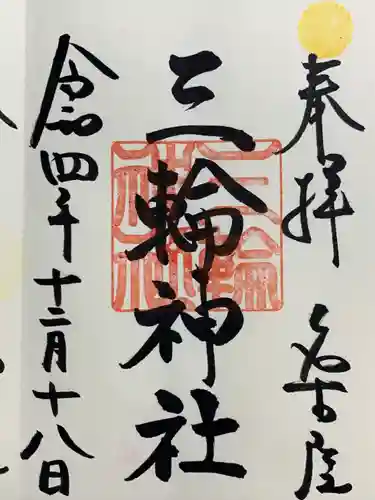 奉拝 名古屋
三輪神社
三輪神社
令和四年十二月十八日